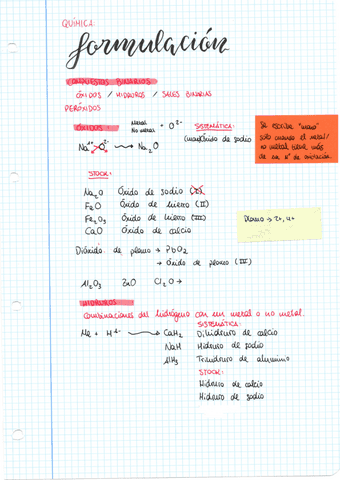 QUÍMICA:
formulación
COMPUESTOS BINARIOS
ÓXIDOS / HIDRUROS / SALES BINARIAS
PERÓXIDOS
ÓXIDOS: Metal No metal + O²⁻ SISTEMÁTICA:
Na¹⁺ O²⁻ → Na₂O (mon)óxido de sodio
Se escribe "mono"
solo cuando el metal/
no metal tiene más
de un nº de oxidación.
STOCK:
Na₂O Óxido de sodio (I)
FeO Óxido de hierro (II)
Fe₂O₃ Óxido de hierro (III)
CaO Óxido de calcio
Plomo → 2+, 4+
Dióxido de plomo → PbO₂
→ Óxido de plomo (IV)
Al₂O₃ ZnO Cl₂O →
HIDRUROS
Combinaciones del hidrógeno con un metal o no metal.
SISTEMÁTICA:
Me + H¹⁻ → CaH₂ Dihidruro de calcio
NaH Hidruro de sodio
AlH₃ Trihidruro de aluminio
STOCK:
Hidruro de calcio
Hidruro de sodio